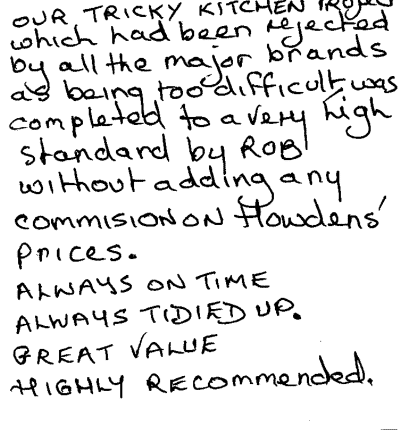 OUR TRICKY KITCHEN PROJECT
which had been rejected
by all the major brands
as being too difficult was
completed to a very high
standard by ROB
without adding any
COMMISION ON Howdens'
Prices.
ALWAYS ON TIME
ALWAYS TIDIED UP.
GREAT VALUE
HIGHLY RECOmmended.